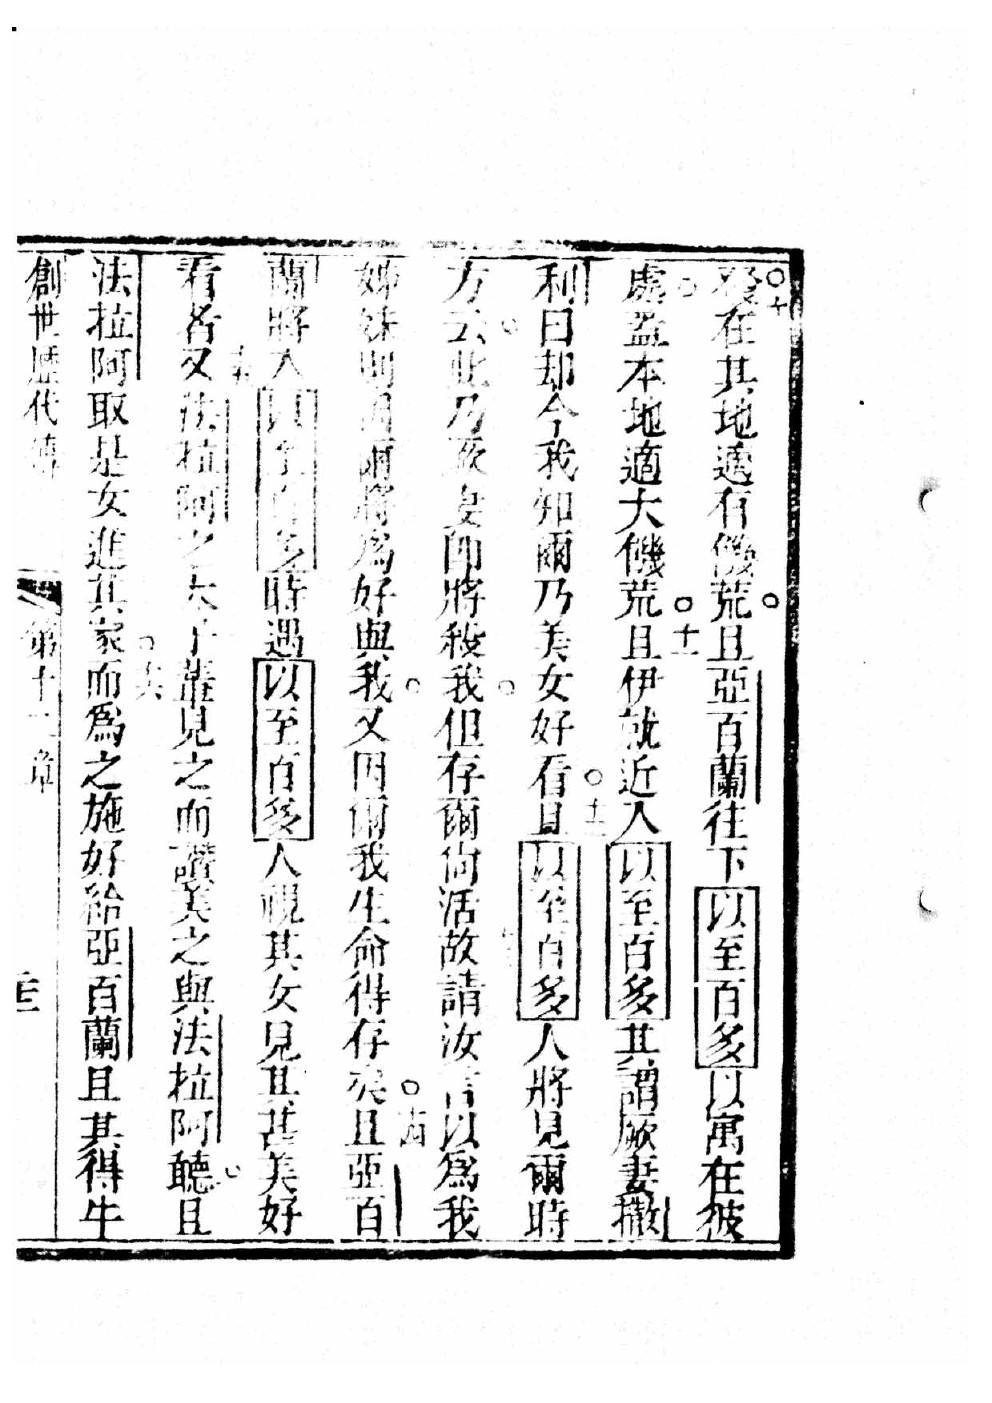 十
在其地適有饑荒且亞百蘭往下以至百多以寓在彼
處蓋本地適大饑荒且伊就近入以至百多其謂厥妻撒
十一
利曰却今我知爾乃美女好看且以至百多人將見爾時
十二
方云此乃厥妻即將殺我但存爾尙活故請汝言以爲我
姊妹則因爾將爲好與我又因爾我生命得存矣且亞百
十四
蘭將入以至百多時遇以至百多人視其女見其甚美好
看者又法拉阿之大子輩見之而讚美之與法拉阿聽且
十五
法拉阿取是女進其家而爲之施好給亞百蘭且其得牛
十六
創世歷代傳 第十二章